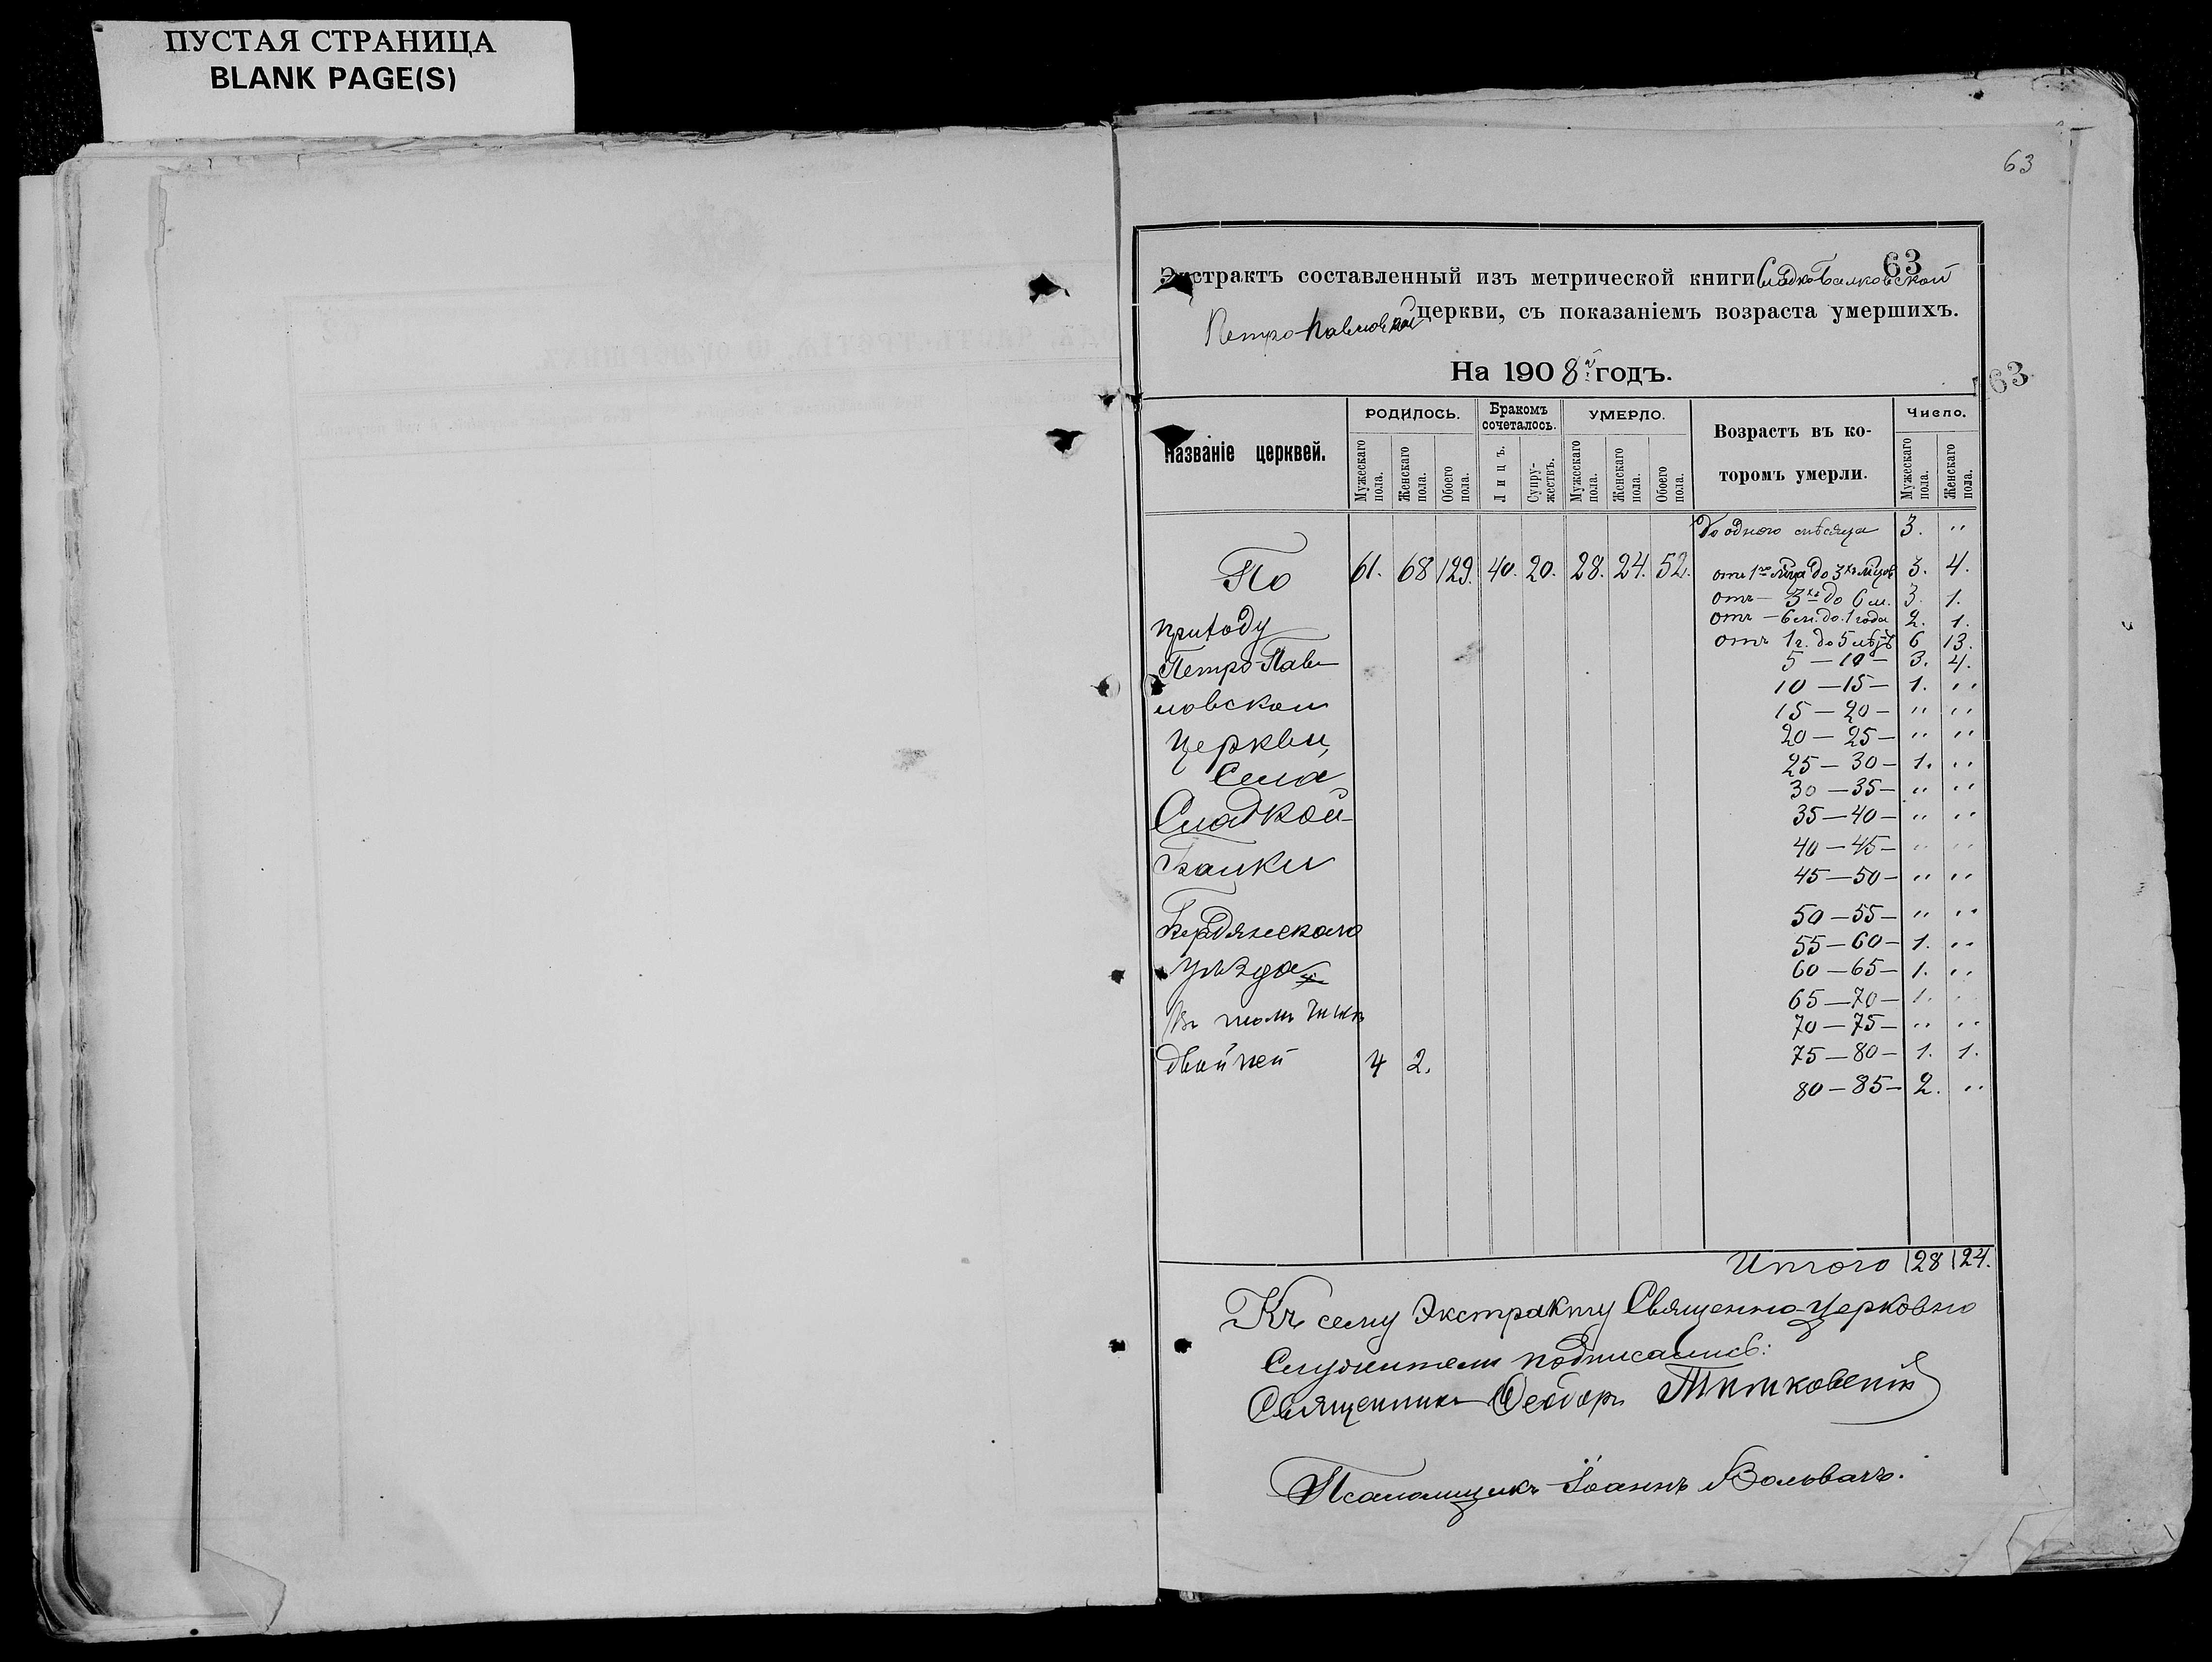 ПУСТАЯ СТРАНИЦА
BLANK PAGE(S)
63
63
Экстрактъ составленный изъ метрической книги Сладко Балковской
Петро-Павловской церкви, съ показаніемъ возраста умершихъ.
На 1908й годъ.
63
Названіе церквей.
РОДИЛОСЬ.
Бракомъ сочеталось.
УМЕРЛО.
Возрастъ въ которомъ умерли.
Число.
Мужескаго пола. Женскаго пола. Обоего пола. Лицъ. Супружествъ. Мужескаго пола. Женскаго пола. Обоего пола. Мужескаго пола. Женскаго пола.
До одного мѣсяца 3. "
По 61. 68 129. 40. 20. 28. 24. 52. отъ 1го мѣца до 3хъ мѣцов 3. 4.
отъ — 3хъ до 6 м. 3. 1.
приходу отъ — 6 м. до 1 года 2. 1.
отъ 1 г. до 5 лѣтъ 6 13.
Петро-Пав- 5 — 10 — 3. 4.
10 — 15 — 1. "
ловской 15 — 20 — " "
Церкви, 20 — 25 — " "
Села 25 — 30 — 1. "
30 — 35 — " "
Сладкой- 35 — 40 — " "
40 — 45 — " "
Балки 45 — 50 — " "
50 — 55 — " "
Бердянскаго 55 — 60 — 1. "
уѣзда 60 — 65 — 1. "
65 — 70 — 1. "
Въ томъ числѣ 70 — 75 — " "
двойней 4 2. 75 — 80 — 1. 1.
80 — 85 — 2. "
Итого 28 24.
Къ сему Экстракту Священно-Церковно
Служители подписались:
Священникъ Феодоръ
Псаломщикъ Іоаннъ